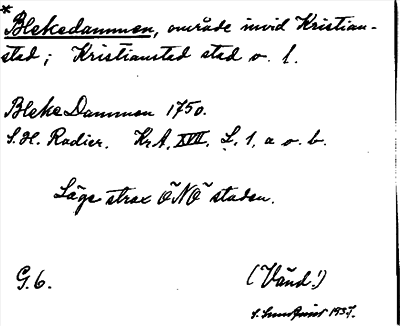 *
Blekedammen, område invid Kristian-
stad; Kristianstad stad o. l.
Bleke Dammen 1750.
S. H. Radier. KrA, XVII, L, 1, a o. b.
Låge strax ÖNÖ staden.
G. 6. (Vänd!)
S. 1937.